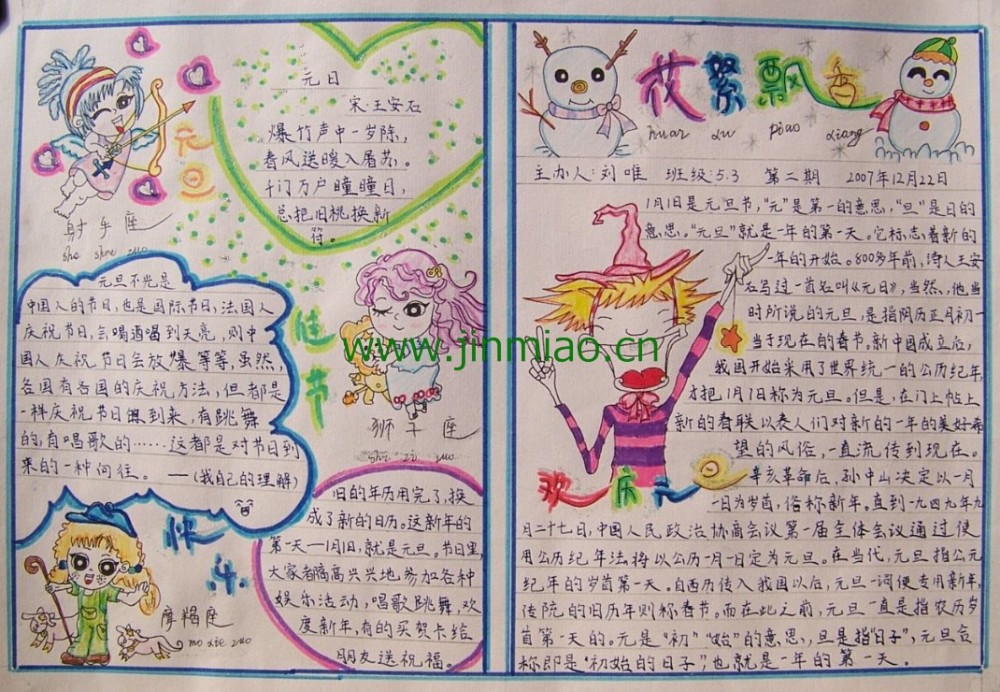 元旦
元日
宋·王安石
爆竹声中一岁除,
春风送暖入屠苏。
千门万户瞳瞳日,
总把旧桃换新
符。
射手座
she shou zuo
元旦不光是
中国人的节日,也是国际节日,法国人
庆祝节日,会喝酒喝到天亮,则中
国人庆祝节日会放爆等等,虽然,
各国有各国的庆祝方法,但都是
一种庆祝节日的到来,有跳舞
的,有唱歌的……这都是对节日到
来的一种向往。——(我自己的理解)
佳节
狮子座
shi zi zuo
快乐
摩羯座
mo jie zuo
旧的年历用完了,换
成了新的日历。这新年的
第一天一1月1日,就是元旦。节日里,
大家都高高兴兴地参加各种
娱乐活动,唱歌跳舞,欢
度新年,有的买贺卡给
朋友送祝福。
花絮飘香
huar xu piao xiang
主办人:刘唯 班级:5.3 第二期 2007年12月22日
1月1日是元旦节,“元”是第一的意思,“旦”是日的
意思,“元旦”就是一年的第一天。它标志着新的
一年的开始。800多年前,诗人王安
石写过一首名叫《元日》,当然,他当
时所说的元旦,是指阴历正月初一
当于现在的春节。新中国成立后,
我国开始采用了世界统一的公历纪年,
才把1月1日称为元旦。但是,在门上帖上
新的春联以表人们对新的一年的美好希
望的风俗,一直流传到现在。
辛亥革命后,孙中山决定以一月
一日为岁首,俗称新年。直到一九四九年九
月二十七日,中国人民政治协商会议第一届全体会议通过使
用公历纪年法,将以公历一月一日定为元旦。在当代,元旦指公元
纪年的岁首第一天。自西历传入我国以后,元旦一词便专用新年,
传统的旧历年则称春节。而在此之前,元旦一直是指农历岁
首第一天的。元是“初”“始”的意思,旦是指“日子”,元旦合
称即是“初始的日子”,也就是一年的第一天。
欢庆元旦
www.jinmiao.cn